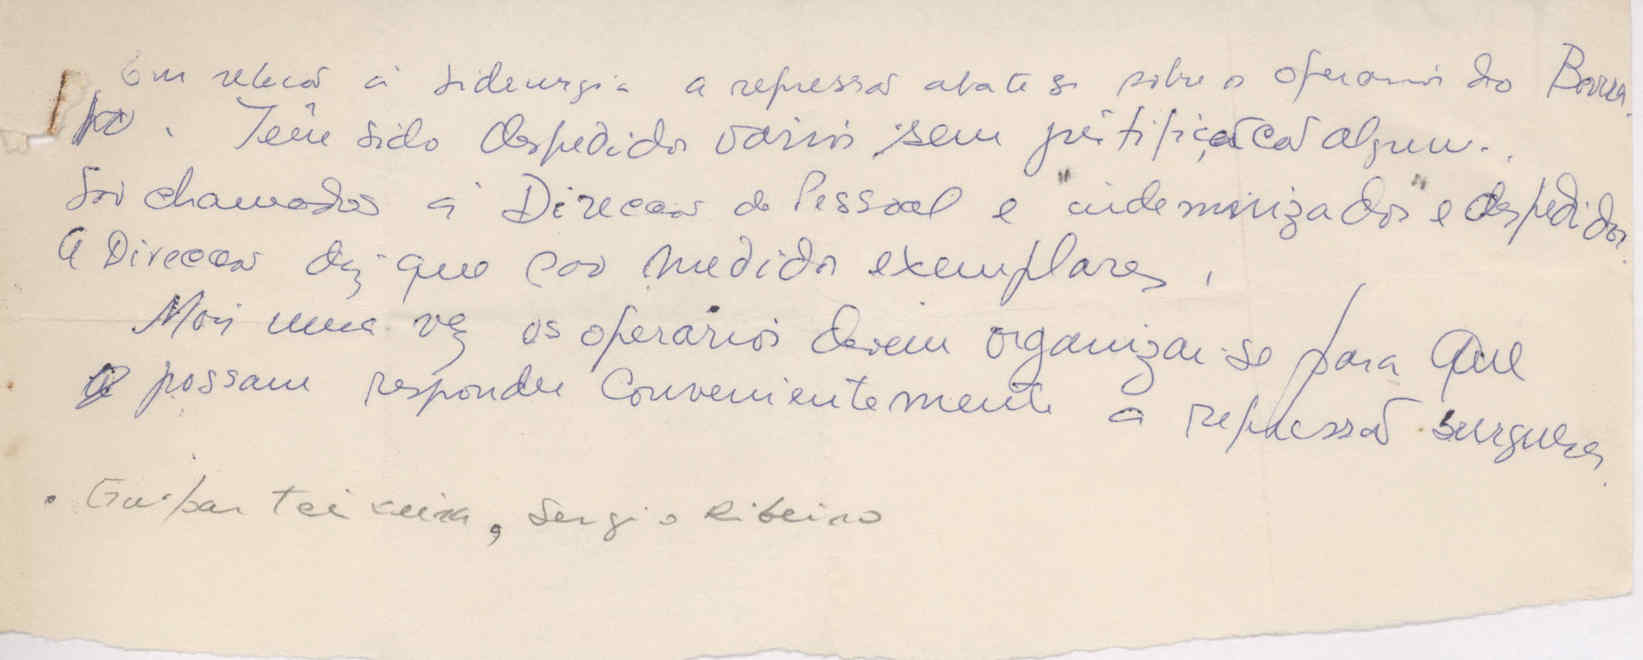 Em relação à siderurgia a repressão abate se sobre os operarios do Barrei
ro. Têm sido despedidos varios sem justificação alguma.
São chamados à Direcção do Pessoal e "indemnizados" e despedidos.
A Direcção diz que são medidas exemplares.
Mais uma vez os operários devem organizar-se para que
possam responder convenientemente a repressão burguesa.
. Gaspar Teixeira, Sergio Ribeiro